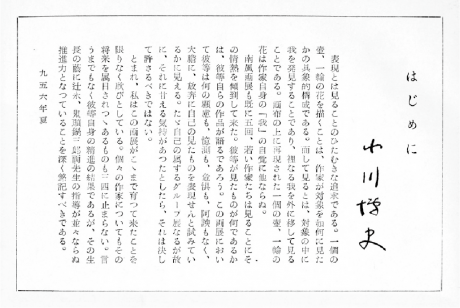 はじめに
小川博史
表現とは見ることのひたむきな追求である。一個の
壺、一輪の花を描くことは、作家が対象を如何に見た
かの具象的構成である。而して見るとは、対象の中に
我を発見することであり、裡なる我を外に移して見る
ことである。画布の上に再現された一個の壺、一輪の
花は作家自身の「我」の自覚に他ならぬ。
南風画展も既に五回、若い作家たちは見ることにそ
の情熱を傾倒して来た。彼等が見たものが何であるか
は、彼等自らの作品が語るであろう。この画展におい
て彼等は何の顧慮も、憶測も、衒倶も、阿諛もなく、
大胆に、放奔に自己の見たものを表現せんと試みてい
るかに見える。たゞ自己の属するグループ展なるが故
に、それに甘える気持があつたとしたら、それは決し
て許さるべきではない。
ともあれ、私はこの画展がこゝまで育つて来たことを
限りなく欣びとしている。個々の作家についてもその
将来を属目されつゝあるものも三四に止まらない。言
うまでもなく彼等自身の精進の結果であるが、その生
長の蔭に辻永、鬼頭鍋三郎両先生の指導が並々ならぬ
推進力となつていることを深く銘記すべきである。
九五六年夏